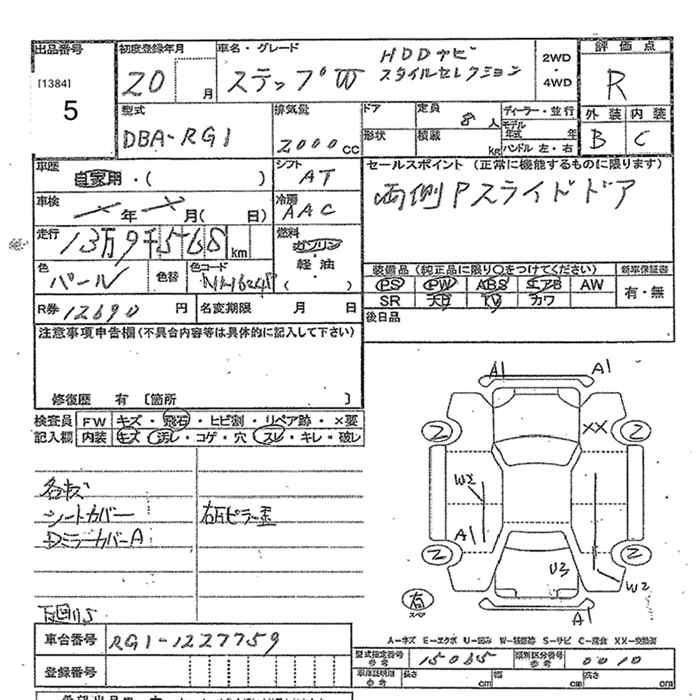 出品番号 [1384] 5
初度登録年月 20 月
車名・グレード ステップW HDDナビ スタイルセレクション
2WD・4WD
評価点 R
外装 内装
B C
型式 DBA-RG1
排気量 2000 cc
ドア 形状
定員 8 人
積載 kg
ディーラー・並行
モデル年式 年
ハンドル 左・右
車歴 自家用・( )
シフト AT
セールスポイント (正常に機能するものに限ります)
両側Pスライドドア
車検 年 月( 日)
冷房 AAC
走行 13万9千568 km
燃料 ガソリン 軽油 ( )
色 パール
色替
色コード
装備品 (純正品に限り○をつけてください) 新車保証書
PS PW ABS エアB AW 有・無
SR ナビ TV カワ
R券 12690 円
名変期限 月 日
後日品
注意事項申告欄(不具合内容等は具体的に記入して下さい)
修復歴 有 〔箇所 〕
検査員記入欄
FW キズ・飛石・ヒビ割・リペア跡・×要
内装 キズ・汚レ・コゲ・穴・スレ・キレ・破レ
各キズ
シートカバー
DミラーカバーA
右Bピラー歪
A1 A1
2 XX 2
W2
A1
2 2
U3 W2
右 スペア A1
A-キズ E-エクボ U-凹み W-補修跡 S-サビ C-腐食 XX-交換済
車台番号 RG1-1227759
登録番号
型式指定番号 参考 15065
類別区分番号 参考 0010
車庫証明用 参考 長さ cm 幅 cm 高さ cm